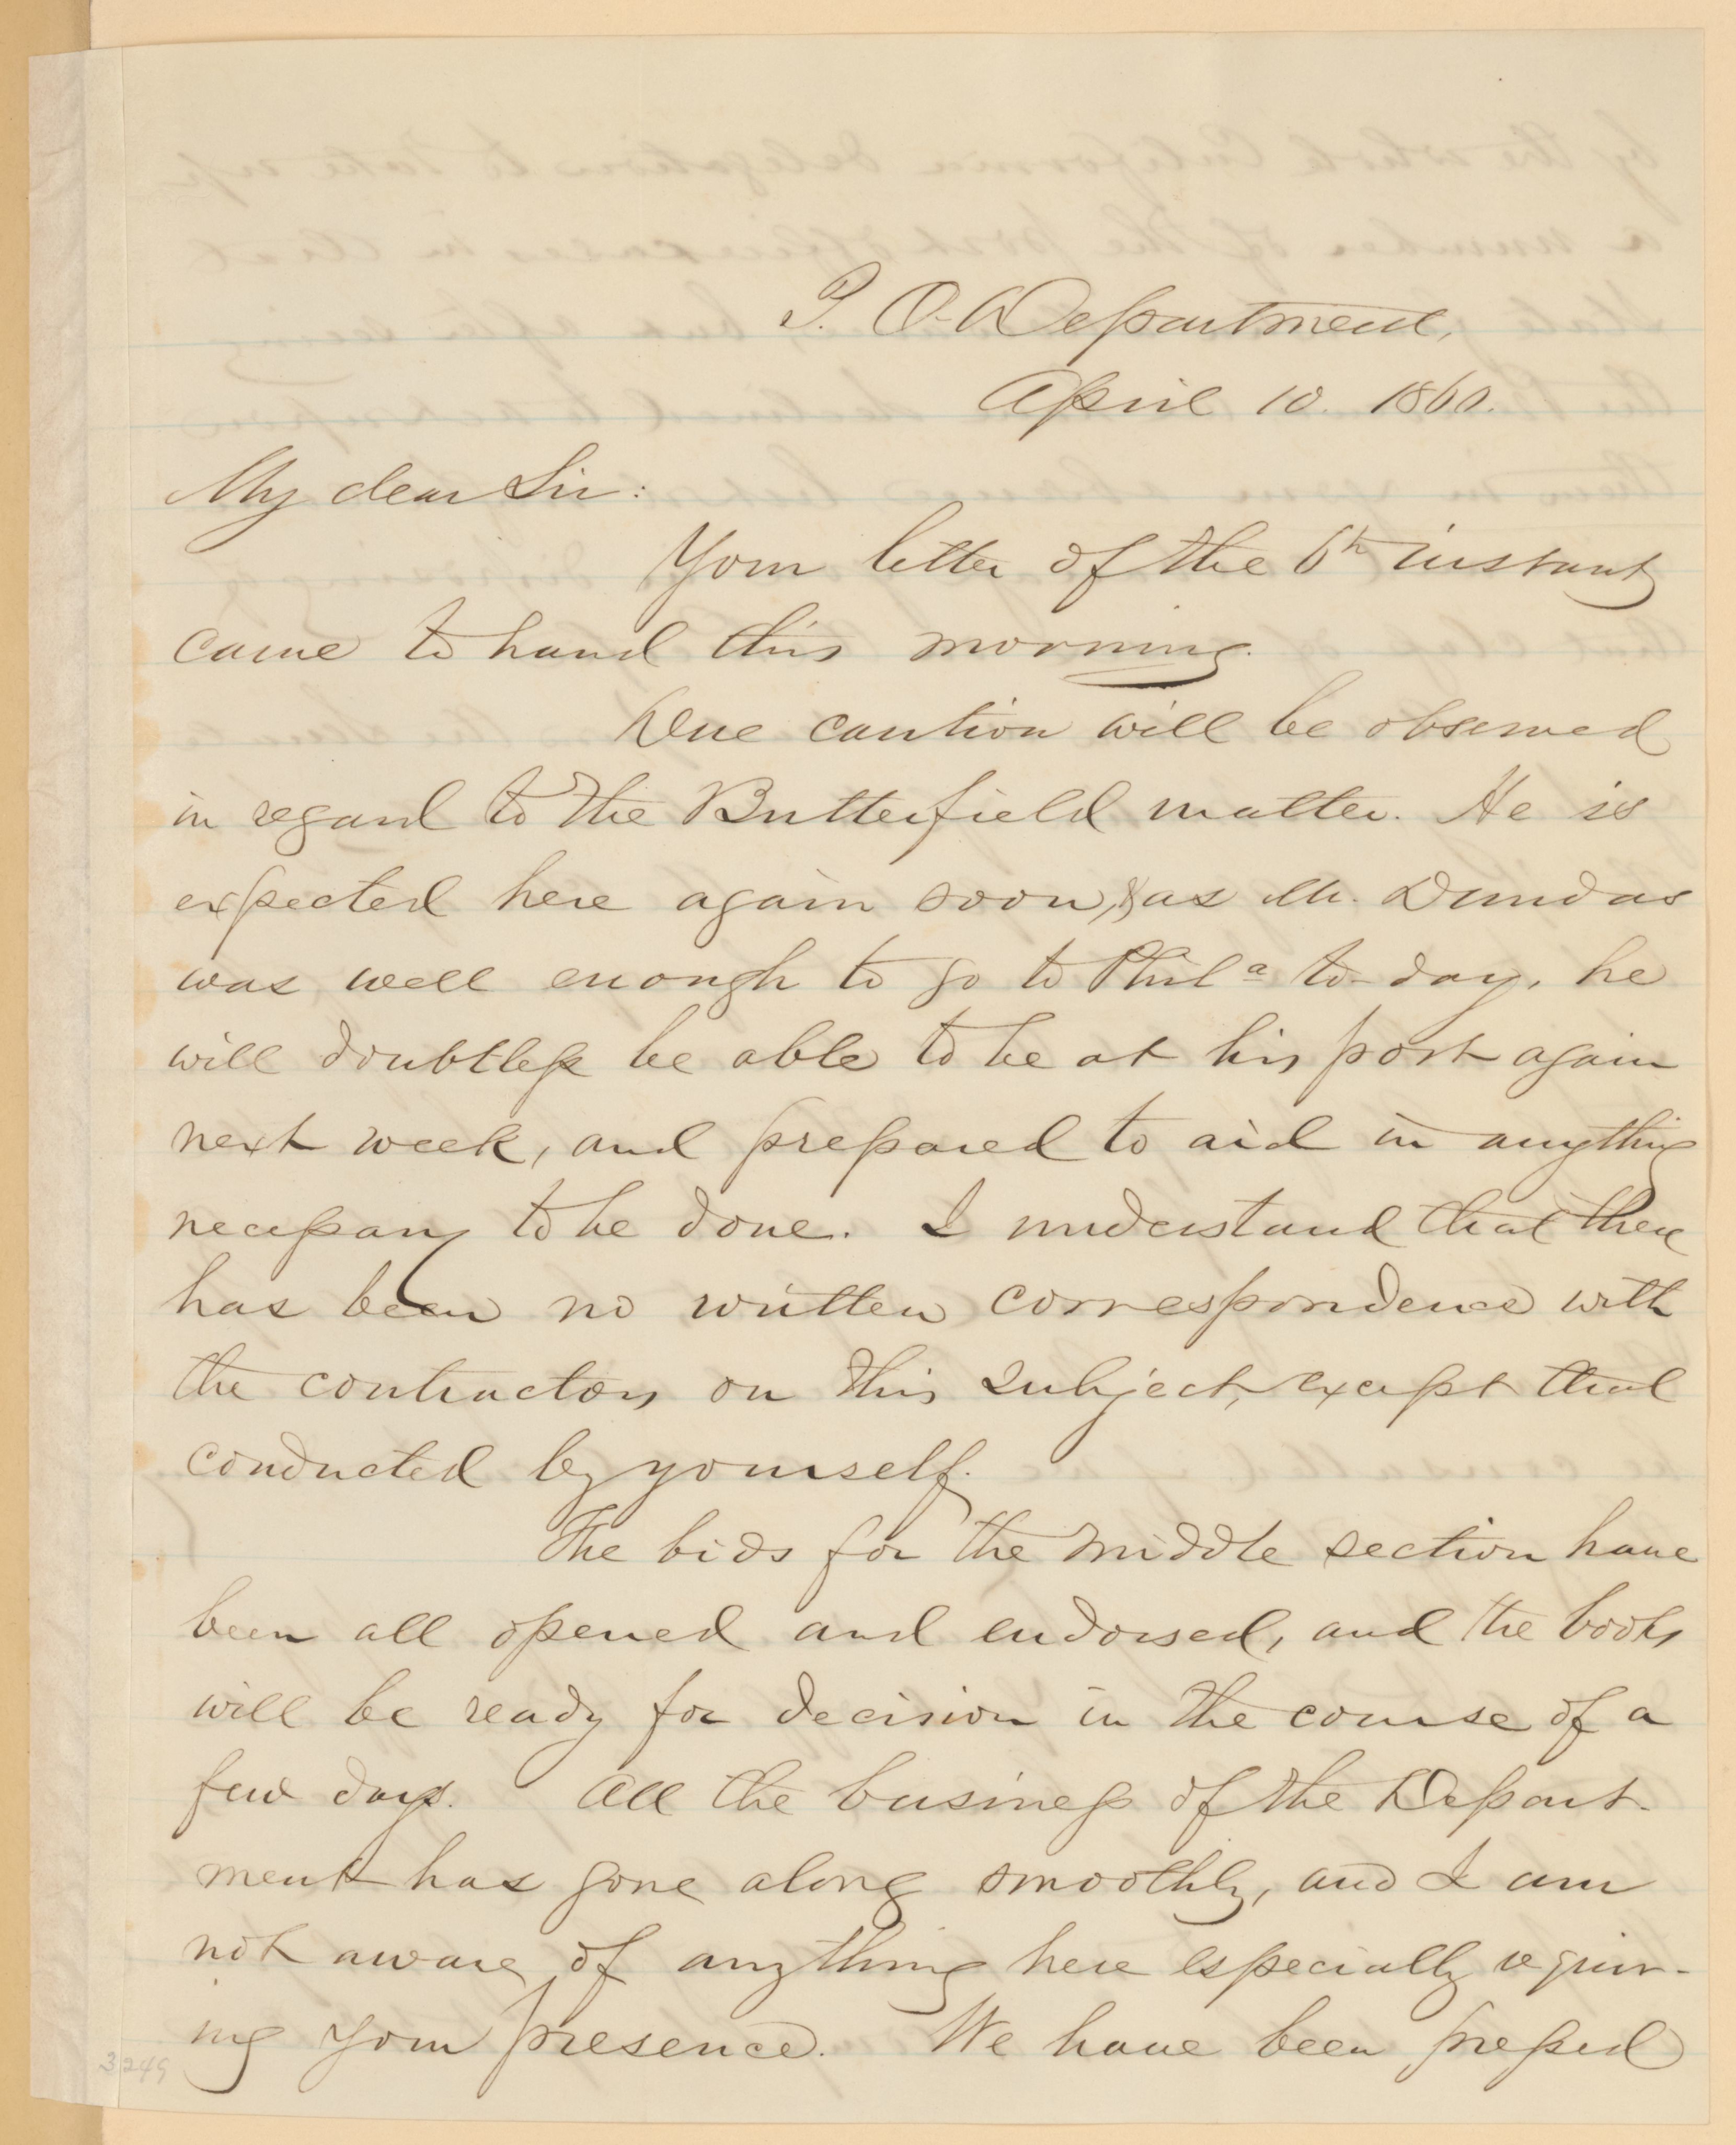 P. O. Department,
April 10. 1860.
My dear Sir:
Your letter of the 6th instant
came to hand this morning.
Due caution will be observed
in regard to the Butterfield matter. He is
expected here again soon, & as Mr. Dundas
was well enough to go to Phila to-day, he
will doubtless be able to be at his post again
next week, and prepared to aid in anything
necessary to be done. I understand that there
has been no written correspondence with
the contractors on this subject, except that
conducted by yourself.
The bids for the middle section have
been all opened and endorsed, and the books
will be ready for decision in the course of a
few days. All the business of the Depart-
ment has gone along smoothly, and I am
not aware of anything here especially requir-
ing your presence. We have been pressed
3249